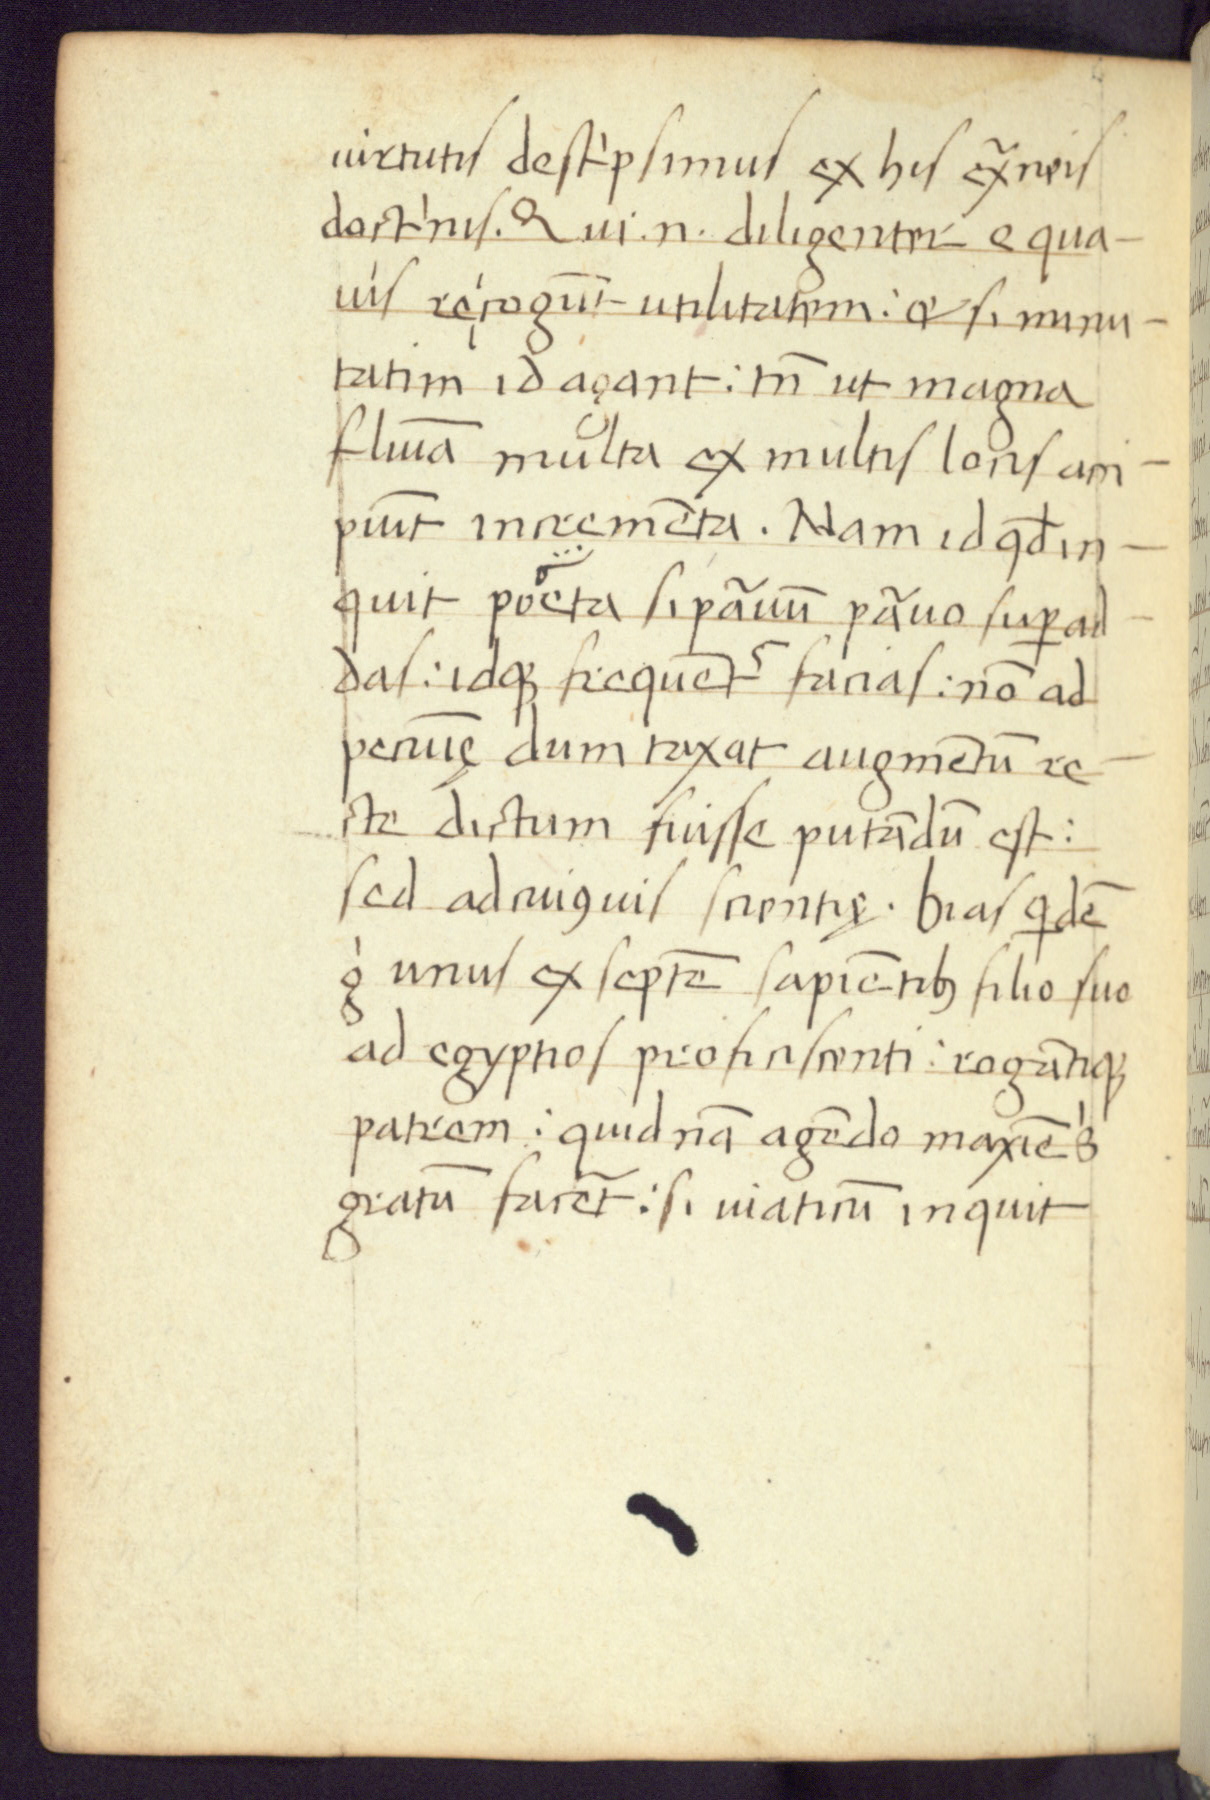 uirtutis destͥpsimus ex his ex̃neis
doctͥnis. Qui .n. diligenter e qua-
uis reͥcogūt utilitatem: & si minu-
tatim id agant: tñ ut magna
fluīa multa ex multis locis acci-
piūt incremēta. Nam id qđ in-
quit poeta si pãuū pãuo suꝑad-
das: idqꝫ frequēt᷑ facias: nō ad
pecuīę dum taxat augmētū re-
cte dictum fuisse putādū est:
sed ad cuiꝯuis scientię. bias qͥdē
gͥ unus ex septē sapiētibꝫ filio suo
ad egyptios proficiscenti: rogātiqꝫ
patrem: quid nā agēdo maxīe sͥ
gratū facēt: si uiaticū inquit